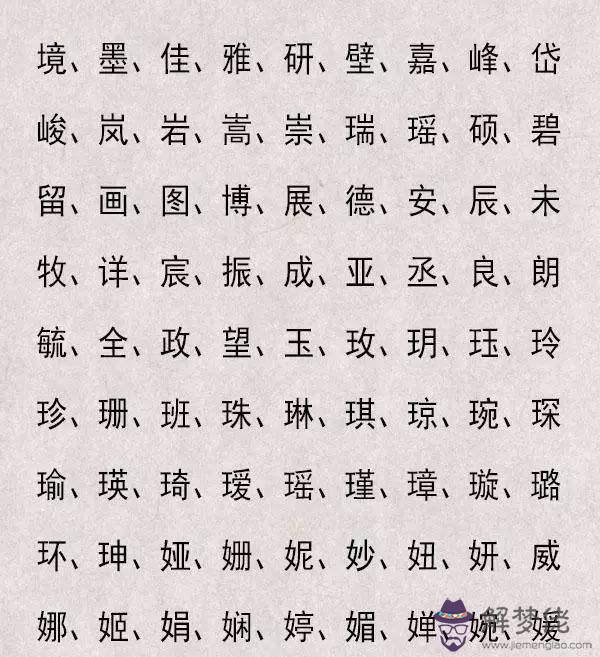 境、墨、佳、雅、研、壁、嘉、峰、岱
峻、岚、岩、嵩、崇、瑞、瑶、硕、碧
留、画、图、博、展、德、安、辰、未
牧、详、宸、振、成、亚、丞、良、朗
毓、全、政、望、玉、玫、玥、珏、玲
珍、珊、班、珠、琳、琪、琼、琬、琛
瑜、瑛、琦、瑷、瑶、瑾、璋、璇、璐
环、珅、娅、姗、妮、妙、妞、妍、威
娜、姬、娟、娴、婷、媚、婵、婉、媛
解梦佬
www.jiemenglao.com